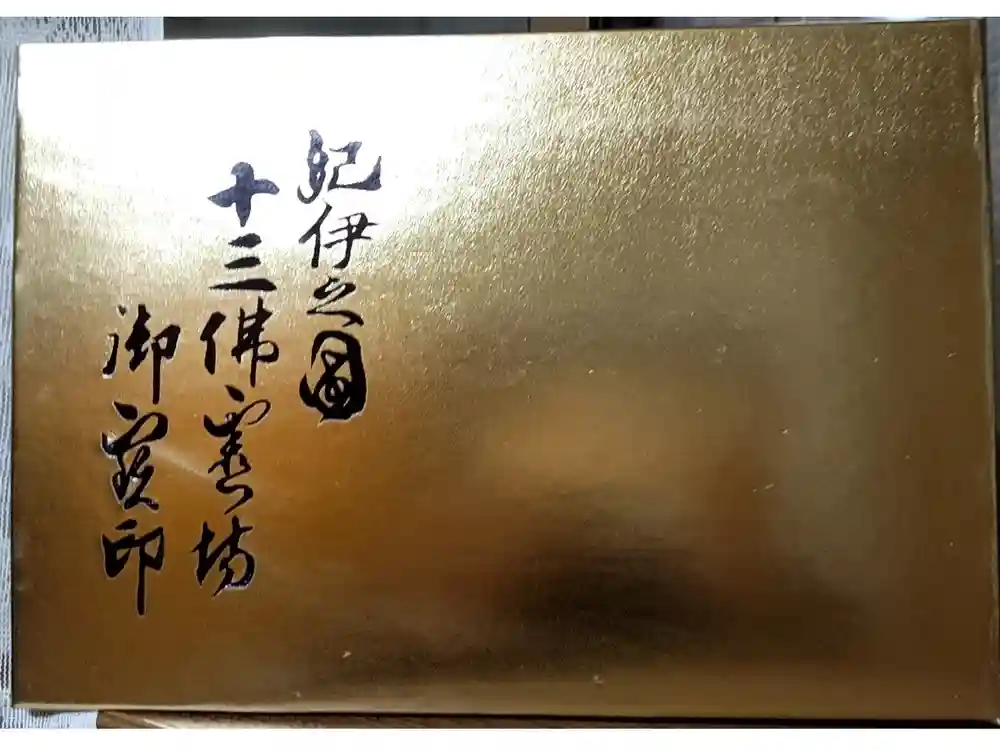 紀伊之國
十三佛霊場
御寳印